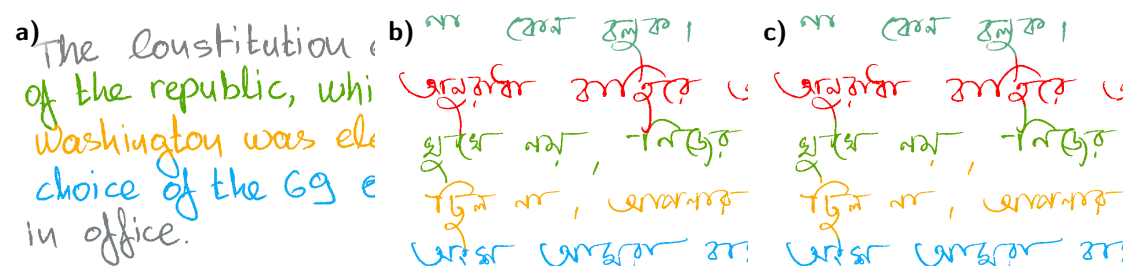 a)
The Constitution
of the republic, whi
Washington was ele
choice of the 69
in office.
b)
না কোন বলুক।
অনুরাধা বাহিরে
মুখে নয়, নিজের
ছিল না, আপনার
অংশ আমরা
c)
না কোন বলুক।
অনুরাধা বাহিরে
মুখে নয়, নিজের
ছিল না, আপনার
অংশ আমরা